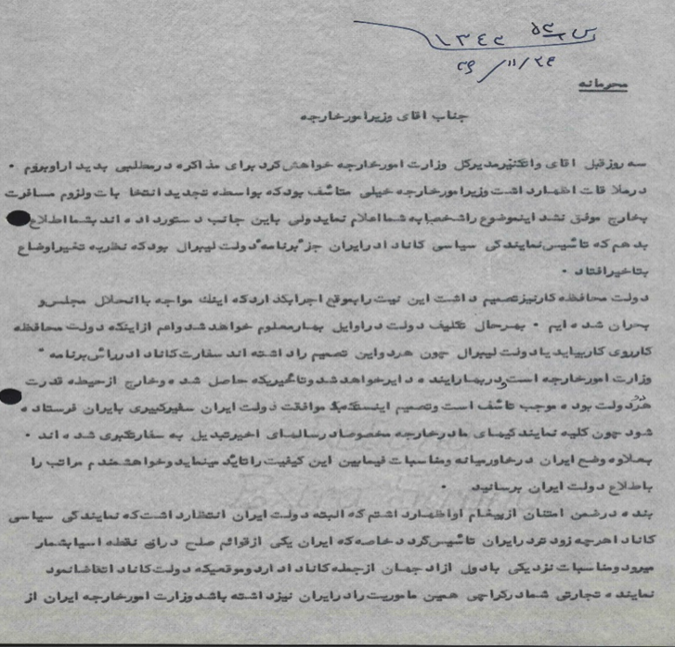 ۱۳۴۲
محرمانه
جناب اقای وزیرامورخارجه
سه روز قبل اقای مدیرکل وزارت امورخارجه خواهش کرد برای مذاکره درمطلبی بدیداراوبروم ۰
درملاقات اظهارداشت وزیرامورخارجه خیلی متأسف بودکه بواسطه تجدید انتخابات ولزوم مسافرت
بخارج موفق نشد اینموضوع راشخصا به شمااعلام نماید ولی باین جانب دستورداده اند بشمااطلاع
بدهم که تأسیس نمایندگی سیاسی کانادادرایران جز برنامه دولت لیبرال بودکه نظربه تغیراوضاع
بتاخیرافتاد ۰
دولت محافظه کارنیزتصمیم داشت این نیت رابموقع اجرابگذاردکه اینك مواجه باانحلال مجلس و
بحران شده ایم ۰ بهرحال تکلیف دولت دراوایل بهارمعلوم خواهدشدواعم ازاینکه دولت محافظه
کارروی کاربیاید یادولت لیبرال چون هردواین تصمیم راداشته اند سفارت کانادا دررأس برنامه
وزارت امورخارجه است ودربهارآینده دایرخواهدشدوتأخیریکه حاصل شده وخارج ازحیطه قدرت
هردودولت بوده موجب تأسف است وتصمیم اینستکه موافقت دولت ایران سفیرکبیری بایران فرستاده
شود چون کلیه نمایندگیهای مادرخارجه مخصوصادرسالهای اخیرتبدیل به سفارتکبری شده اند ۰
بعلاوه وضع ایران درخاورمیانه ومناسبات فیمابین این کیفیت راتأیید مینماید وخواهشمندم مراتب را
باطلاع دولت ایران برسانید ۰
بنده درضمن امتنان ازپیغام اواظهارداشتم که البته دولت ایران انتظارداشت که نمایندگی سیاسی
کانادا هرچه زودتردرایران تأسیس گردد خاصه که ایران یکی ازقوائم صلح دراین نقطه اسیابشمار
میرود ومناسبات نزدیکی بادول ازادجهان ازجمله کانادا دارد وموقعیکه دولت کانادا اتقاضانمود
نماینده تجارتی شمادرکراچی همین ماموریت رادرایران نیزداشته باشد وزارت امورخارجه ایران از